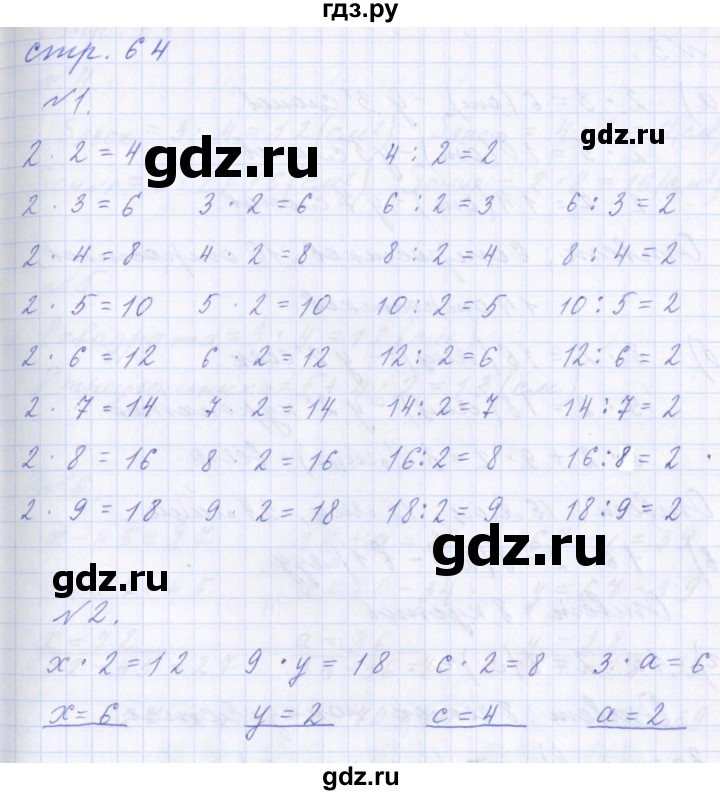 гдз.ру
стр. 64
№1.
2 · 2 = 4 4 : 2 = 2
gdz.ru
gdz.ru
2 · 3 = 6 3 · 2 = 6 6 : 2 = 3 6 : 3 = 2
2 · 4 = 8 4 · 2 = 8 8 : 2 = 4 8 : 4 = 2
2 · 5 = 10 5 · 2 = 10 10 : 2 = 5 10 : 5 = 2
2 · 6 = 12 6 · 2 = 12 12 : 2 = 6 12 : 6 = 2
2 · 7 = 14 7 · 2 = 14 14 : 2 = 7 14 : 7 = 2
2 · 8 = 16 8 · 2 = 16 16 : 2 = 8 16 : 8 = 2
2 · 9 = 18 9 · 2 = 18 18 : 2 = 9 18 : 9 = 2
gdz.ru
gdz.ru
№2.
x · 2 = 12 9 · y = 18 c · 2 = 8 3 · a = 6
x = 6 y = 2 c = 4 a = 2
gdz.ru